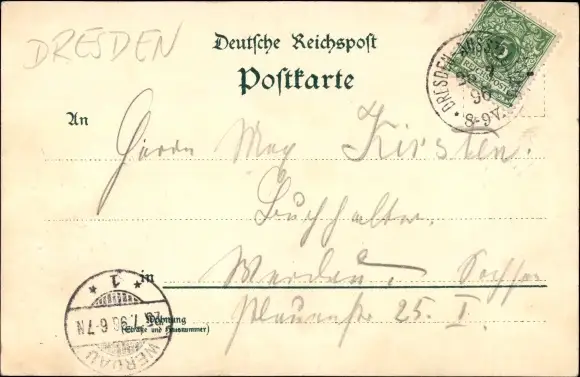 DRESDEN
Deutsche Reichspost
Postkarte
5
REICHSPOST
DRESDEN
96
8-9V.
An
Herrn Max Kirsten.
Buchhalter.
in Werdau. Sachsen
Wohnung
(Straße und Hausnummer)
Plauensche 25. I.
WERDAU
1
25.7.96 6-7N